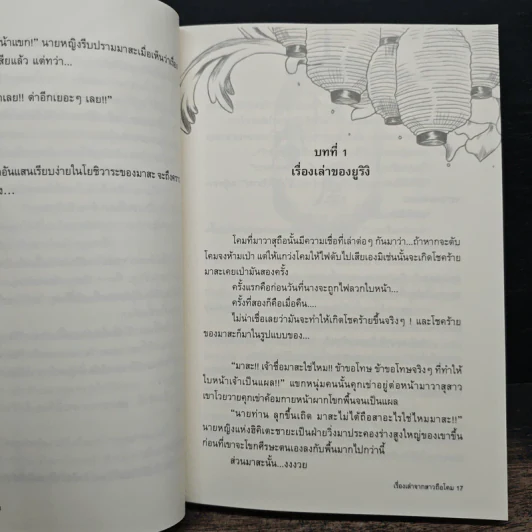 น้าแขก!” นายหญิงรีบปรามมาสะเมื่อเห็นว่าเรื่อง
สียแล้ว แต่ทว่า...
เลย!! ด่าอีกเยอะๆ เลย!!”
อันแสนเรียบง่ายในโยชิวาระของมาสะ จะถึงครา
บทที่ 1
เรื่องเล่าของยูริงิ
โคมที่มาวาสุถือนั้นมีความเชื่อที่เล่าต่อๆ กันมาว่า...ถ้าหากจะดับ
โคมจงห้ามเป่า แต่ให้แกว่งโคมให้ไฟดับไปเสียเองมิเช่นนั้นจะเกิดโชคร้าย
มาสะเคยเป่ามันสองครั้ง
ครั้งแรกคือก่อนวันที่นางจะถูกไฟลวกใบหน้า...
ครั้งที่สองก็คือเมื่อคืน....
ไม่น่าเชื่อเลยว่ามันจะทำให้เกิดโชคร้ายขึ้นจริงๆ ! และโชคร้าย
ของมาสะก็มาในรูปแบบของ...
“มาสะ!! เจ้าชื่อมาสะใช่ไหม!! ข้าขอโทษ ข้าขอโทษจริงๆ ที่ทำให้
ใบหน้าเจ้าเป็นแผล!!” แขกหนุ่มคนนั้นคุกเข่าอยู่ต่อหน้ามาวาสุสาว
เขาโวยวายคุกเข่าค้อมกายหน้าผากโขกพื้นจนเป็นแผล
“นายท่าน ลุกขึ้นเถิด มาสะไม่ได้ถือสาอะไรใช่ไหมมาสะ!!”
นายหญิงแห่งฮิคิเตะชายะเป็นฝ่ายวิ่งมาประคองร่างสูงใหญ่ของเขาขึ้น
ก่อนที่เขาจะโขกศีรษะตนเองลงกับพื้นมากไปกว่านี้
ส่วนมาสะนั้น...งงงวย
เรื่องเล่าจากสาวถือโคม 17